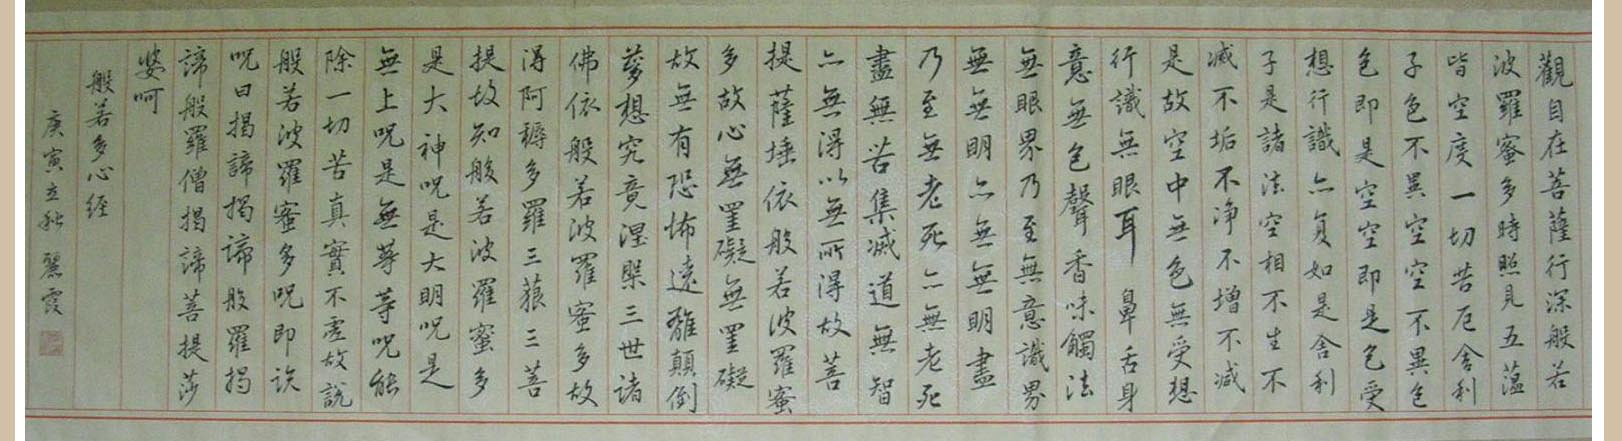 觀自在菩薩行深般若
波羅蜜多時照見五蕰
皆空度一切苦厄舍利
子色不異空空不異色
色即是空空即是色受
想行識亦復如是舍利
子是諸法空相不生不
滅不垢不净不增不減
是故空中無色無受想
行識無眼耳鼻舌身
意無色聲香味觸法
無眼界乃至無意識界
無無明亦無無明盡
乃至無老死亦無老死
盡無苦集滅道無智
亦無得以無所得故菩
提薩埵依般若波羅蜜
多故心無罣礙無罣礙
故無有恐怖遠離顛倒
夢想究竟涅槃三世諸
佛依般若波羅蜜多故
得阿耨多羅三藐三菩
提故知般若波羅蜜多
是大神呪是大明呪是
無上呪是無等等呪能
除一切苦真實不虛故說
般若波羅蜜多呪即說
呪曰揭諦揭諦般羅揭
諦般羅僧揭諦菩提莎
婆呵
般若多心經
庚寅立秋 麗霞